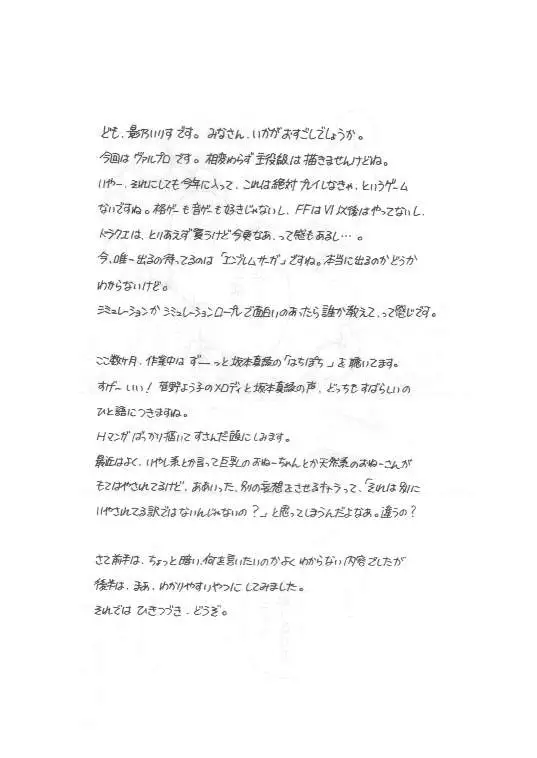 ども、最乃いりす です。みなさん、いかがおすごしでしょうか。
今回は ヴァルプロ です。相変わらず 主役級は 描きませんけどね。
いやー、それにしても今年に入って、これは絶対 プレイしなきゃ、というゲーム
ないですね。格ゲーも 音ゲーも 好きじゃないし、FFは VI 以後は やってないし、
ドラクエは、とりあえず 買うけど 今更なあ、って感もあるし…。
今、唯一 出るの待ってるのは「エンブレムサーガ」ですね。本当に出るのか どうか
わからないけど。
シミュレーションか シミュレーションロープレで 面白いのあったら 誰か 教えて、って感じです。
ここ数ヶ月、作業中は ずーーっと 坂本真綾の「はちぽち」を 聴いてます。
すげー いい! 菅野よう子のメロディと 坂本真綾の声、どっちも すばらしいの
ひと語につきますね。
Hマンガばっかり描いて すさんだ 頭に しみます。
最近はよく、いやし系とか言って 巨乳のおねーちゃんとか 天然系のおねーさんが
もてはやされてるけど、ああいった、別の妄想をさせるキャラって、「それは 別に
いやされてる訳ではないんじゃないの?」と 思ってしまうんだよなあ。違うの?
さて 前半は、ちょっと 暗い、何を言いたいのか よく わからない 内容でしたが
後半は、まあ、わかりやすいやつに してみました。
それでは ひきつづき、どうぞ。